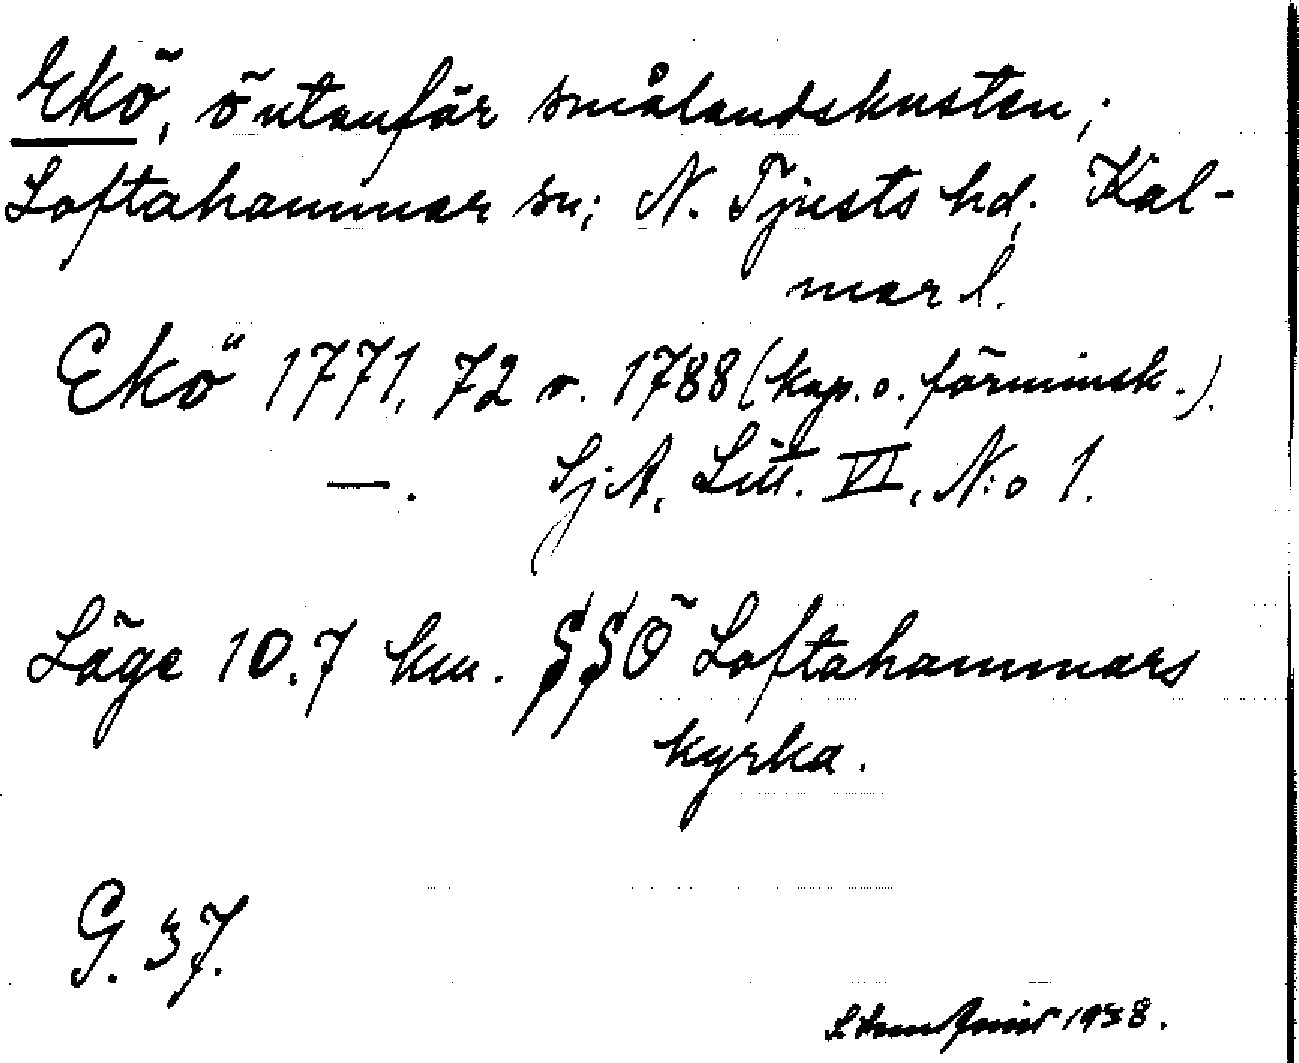 Ekö, ö utanför smålandskusten;
Loftahammar sn; N. Tjusts hd; Kal-
mar l.
Ekö 1771, 72 o. 1788 (kop. o. förminsk.).
—. SjA, Litt. VI, N:o 1.
Läge 10.7 km. SSÖ Loftahammars
kyrka.
G. 37.
1938.